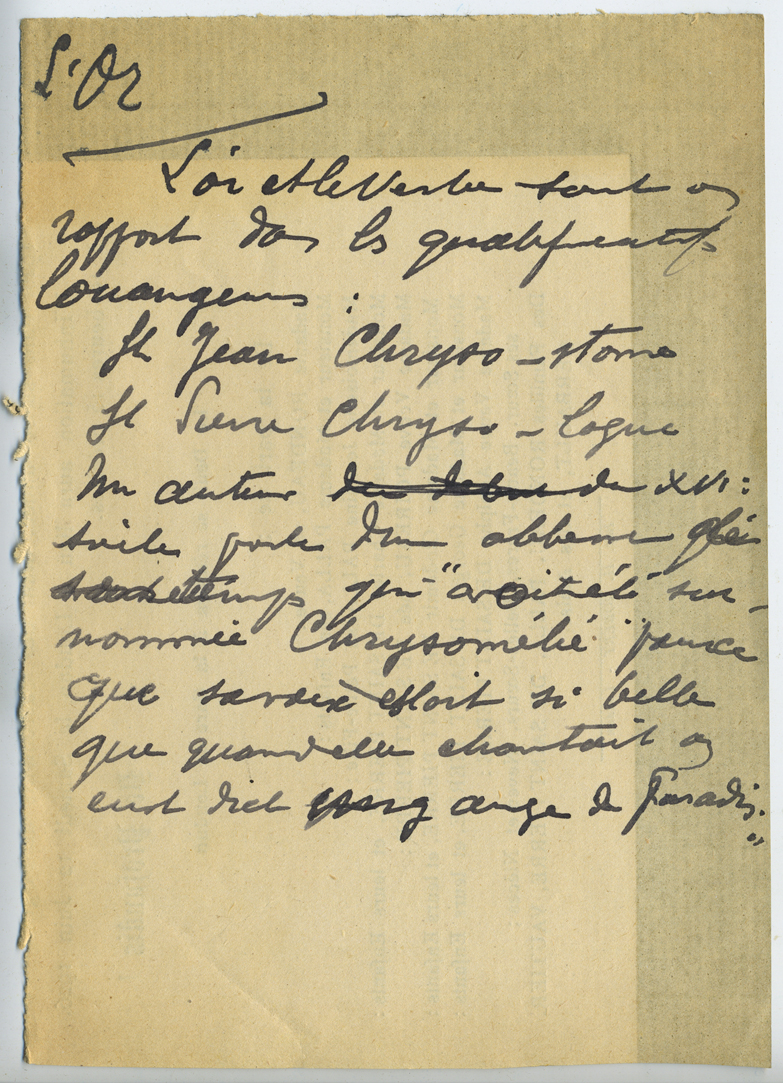 L'Or
L'or et le Verbe sont en
rapport dans les qualificatifs
louangeurs :
St Jean Chryso-stome
St Pierre Chryso-logue
Un auteur du début du XVI:
siècle parle d'une abbesse
qui "avoit été sur-
nommée Chrysomélie parce
que sa voix estoit si belle
que quand elle chantait on
eust dict ung ange de Paradis."